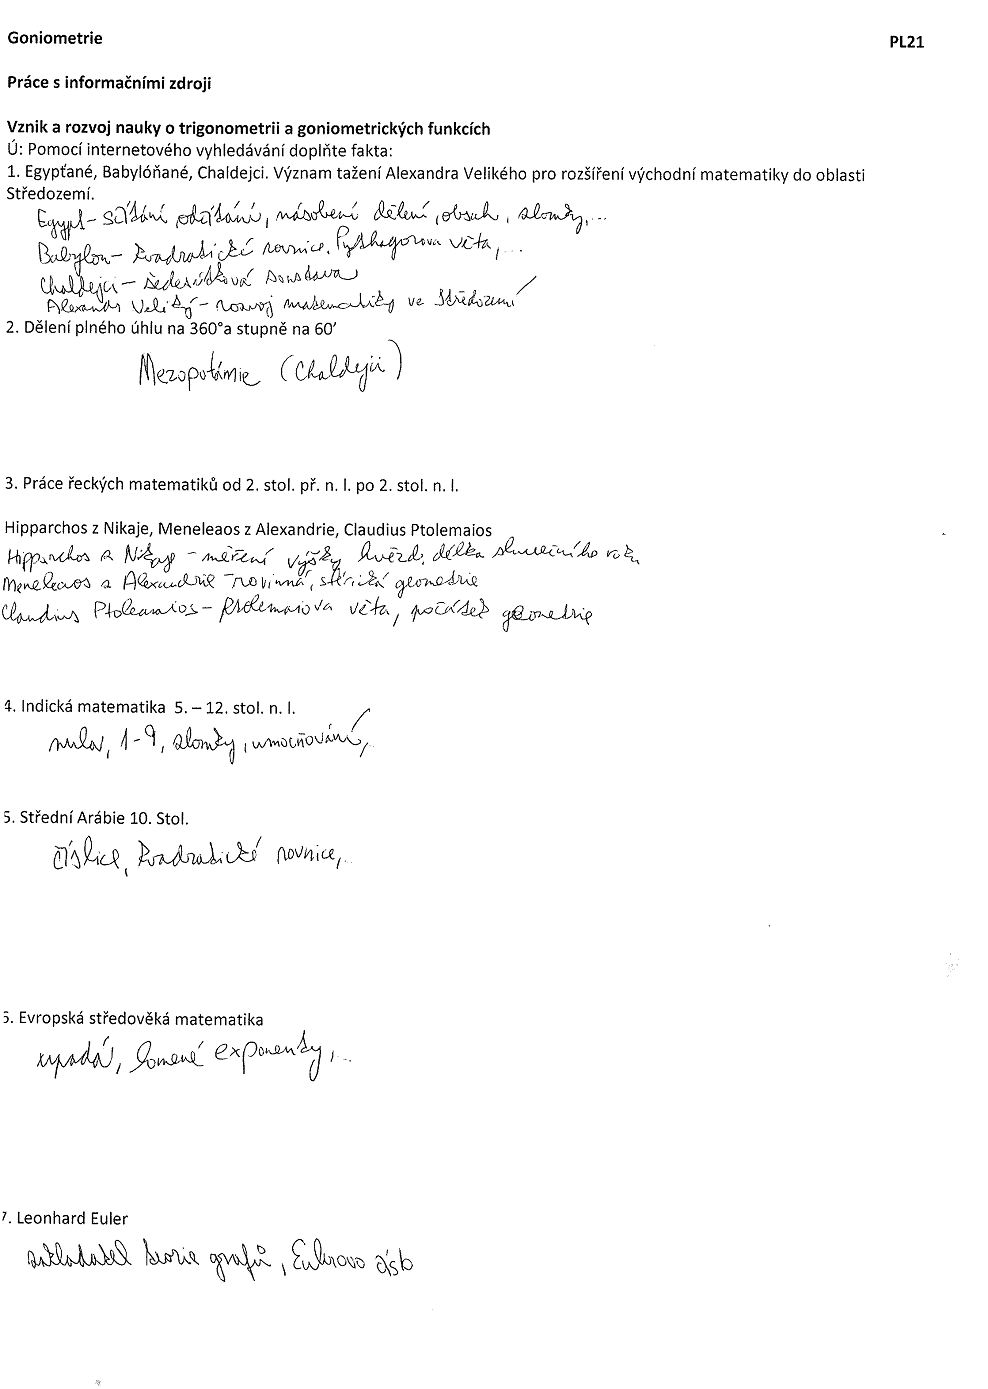 Goniometrie
PL21
Práce s informačními zdroji
Vznik a rozvoj nauky o trigonometrii a goniometrických funkcích
Ú: Pomocí internetového vyhledávání doplňte fakta:
1. Egypťané, Babylóňané, Chaldejci. Význam tažení Alexandra Velikého pro rozšíření východní matematiky do oblasti
Středozemí.
Egypt – sčítání, odčítání, násobení dělení, obsah, zlomky,...
Babylon – kvadratické rovnice, Pythagorova věta,...
Chaldejci – šedesátková soustava
Alexandr Veliký – rozvoj matematiky ve Středozemí
2. Dělení plného úhlu na 360°a stupně na 60′
Mezopotámie (Chaldejci)
3. Práce řeckých matematiků od 2. stol. př. n. l. po 2. stol. n. l.
Hipparchos z Nikaje, Meneleaos z Alexandrie, Claudius Ptolemaios
Hipparchos z Nikaje – měření výšky hvězd, délka slunečního roku
Meneleaos z Alexandrie – rovinná, sférická geometrie
Claudius Ptoleamaios – Ptolemaiova věta, počátek geometrie
4. Indická matematika 5. – 12. stol. n. l.
nula, 1-9, zlomky, umocňování,..
5. Střední Arábie 10. Stol.
číslice, kvadratické rovnice,..
6. Evropská středověká matematika
upadá, lomené exponenty,...
7. Leonhard Euler
zakladatel teorie grafů, Eulerovo číslo